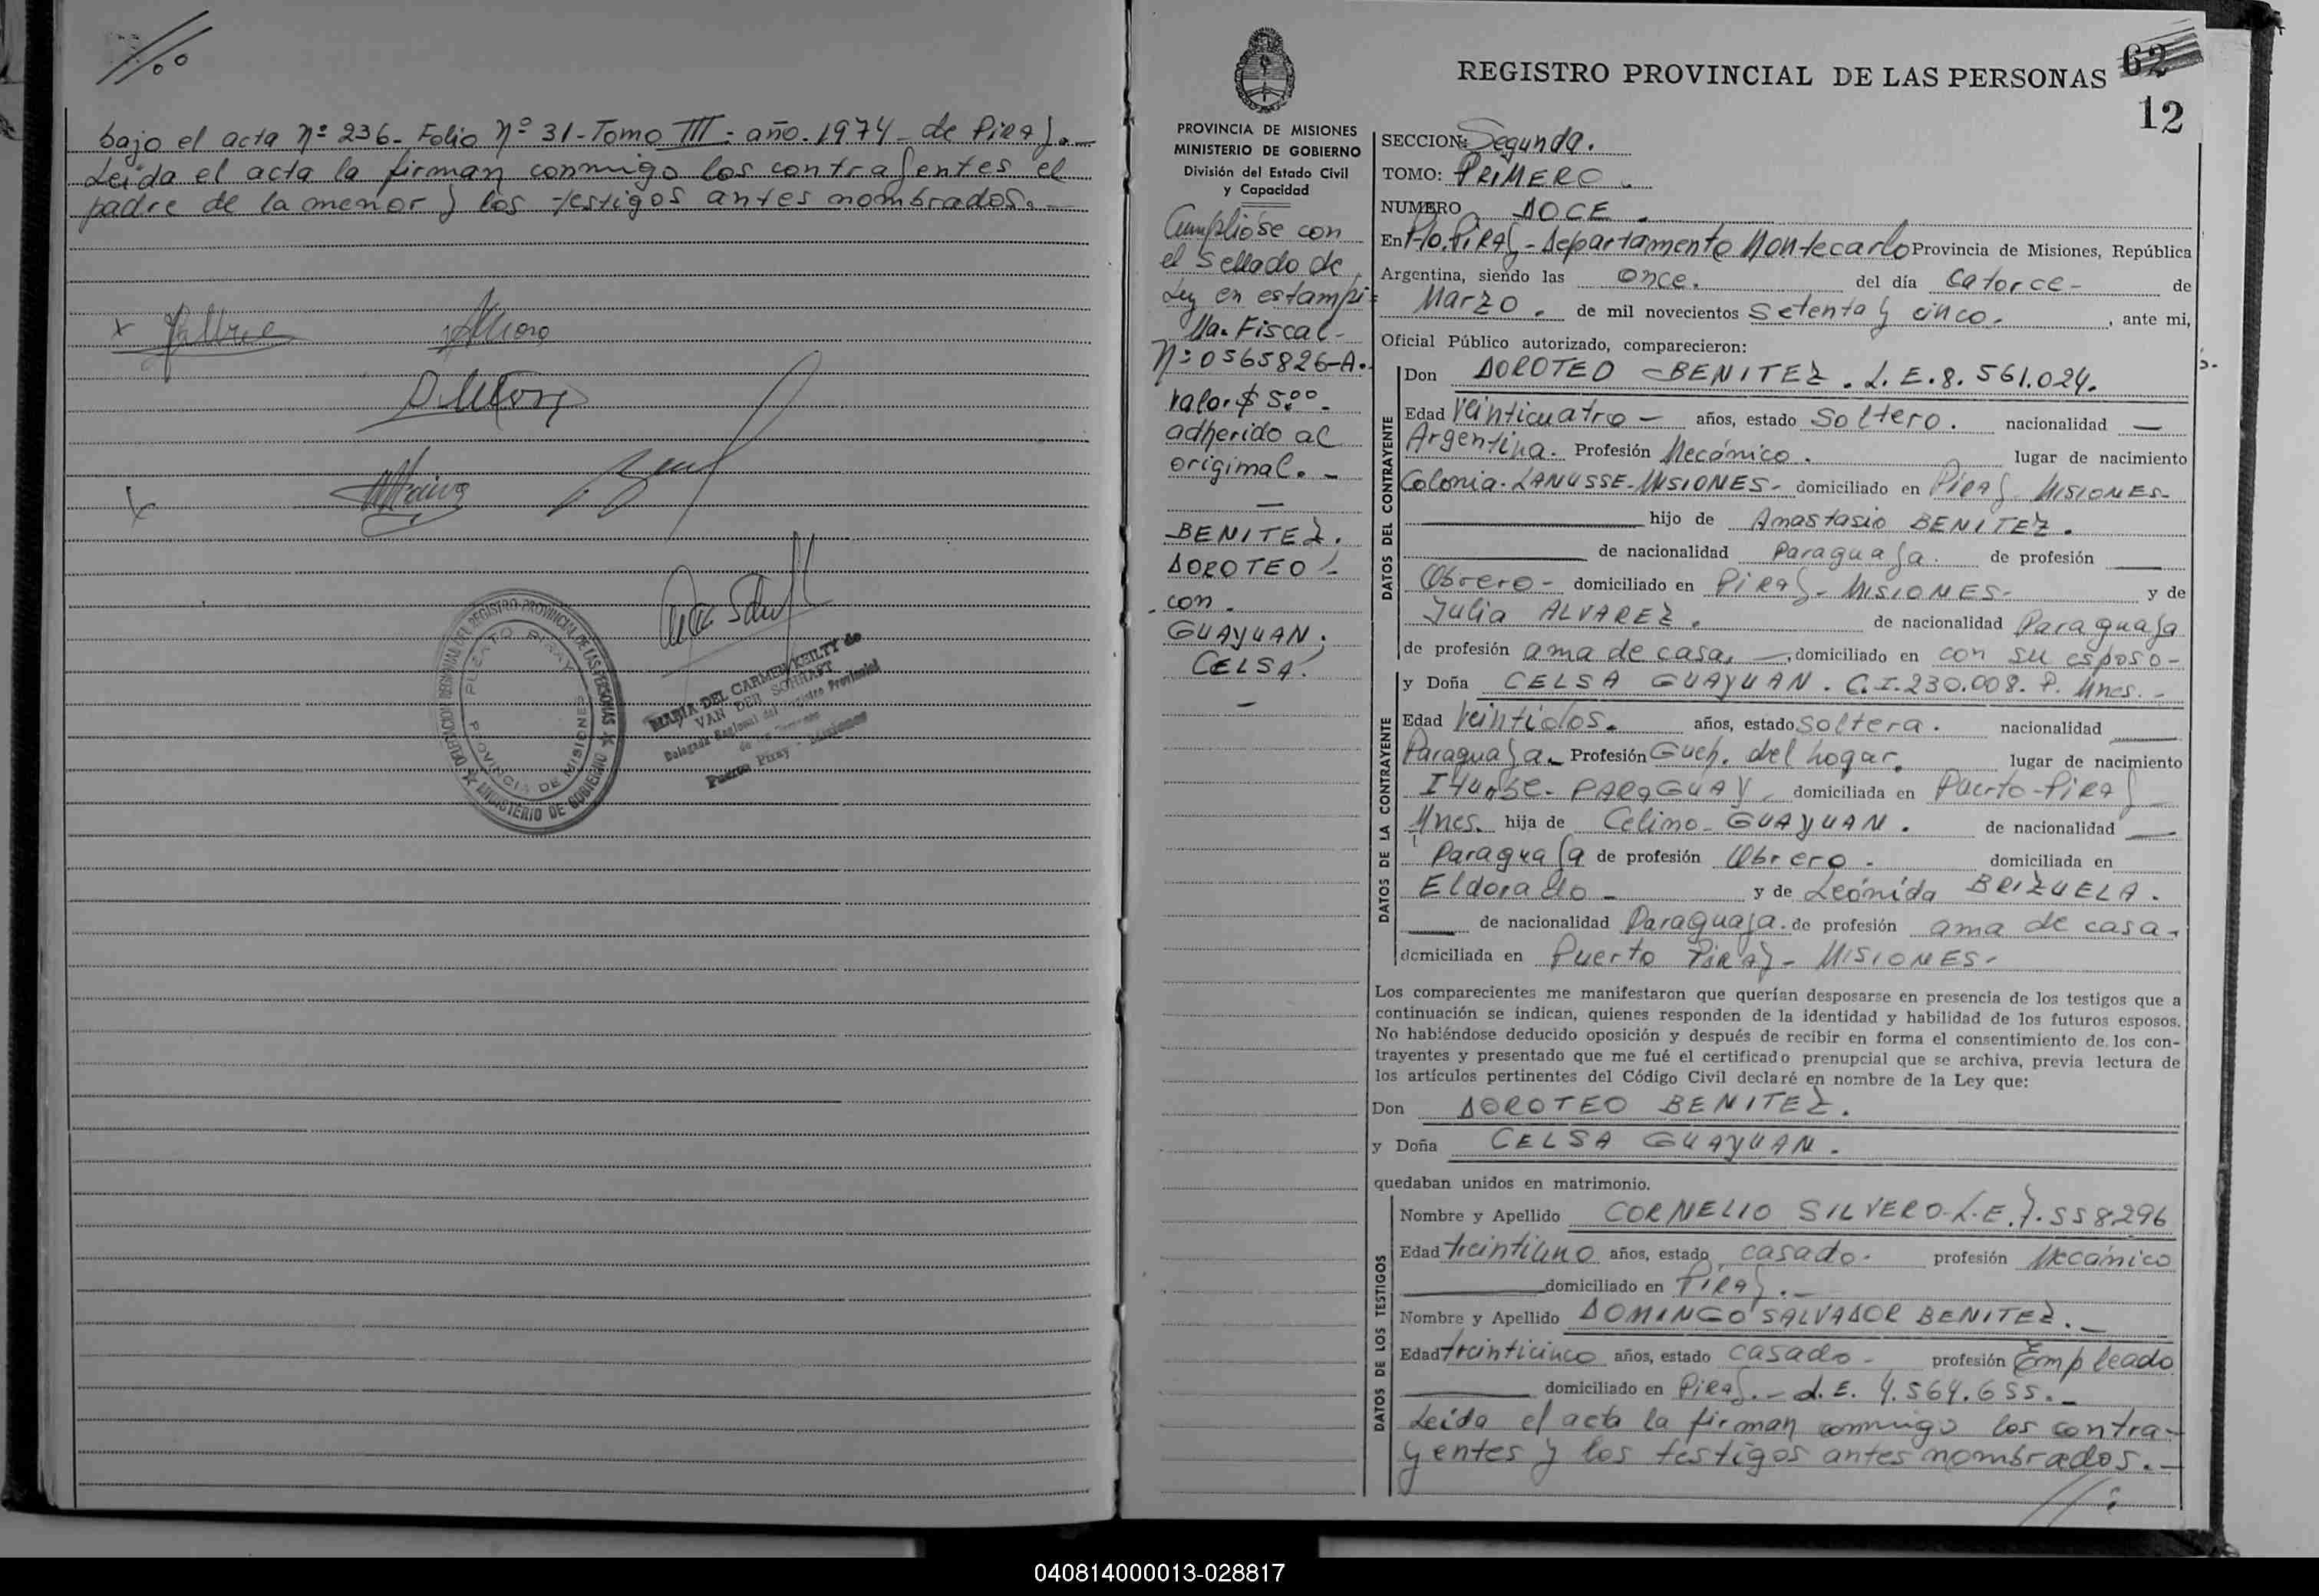 bajo el acta Nº 236- Folio Nº 31-Tomo III- año-1974- de Piray.-
Leída el acta la firman conmigo los contrayentes el
padre de la menor y los testigos antes nombrados.-
DELEGACION REGIONAL DEL REGISTRO PROVINCIAL DE LAS PERSONAS
★ MINISTERIO DE GOBIERNO ★
PUERTO PIRAY
PROVINCIA DE MISIONES
MARIA DEL CARMEN KEILTY de
VAN DER SCHRAFT
Delegada Regional del Registro Provincial
de las Personas
Puerto Piray - Misiones
REGISTRO PROVINCIAL DE LAS PERSONAS
62
12
PROVINCIA DE MISIONES
MINISTERIO DE GOBIERNO
División del Estado Civil
y Capacidad
Cumplióse con
el sellado de
Ley en estampi=
lla. Fiscal-
Nº 0565826-A.
valor $ 5.00-
adherido al
original.-
BENITEZ.
DOROTEO!-
-con-
GUAYUAN;
CELSA!
SECCION: Segunda.
TOMO: PRIMERO.
NUMERO DOCE.
En Pto. PIRAY- Departamento Montecarlo Provincia de Misiones, República
Argentina, siendo las once. del día catorce- de
Marzo. de mil novecientos Setenta y cinco- , ante mi,
Oficial Público autorizado, comparecieron:
DATOS DEL CONTRAYENTE
Don DOROTEO BENITEZ. L.E.8.561.024.
Edad Veinticuatro- años, estado Soltero. nacionalidad —
Argentina. Profesión Mecánico. lugar de nacimiento
Colonia-LANUSSE-MISIONES- domiciliado en PIRAY MISIONES-
hijo de Anastasio BENITEZ.
de nacionalidad Paraguaya. de profesión
Obrero- domiciliado en PIRAY- MISIONES- y de
Julia ALVAREZ. de nacionalidad Paraguaya
de profesión ama de casa,- , domiciliado en con su esposo-
DATOS DE LA CONTRAYENTE
y Doña CELSA GUAYUAN. C.I.230.008.P.Mnes.-
Edad Veintidos. años, estado Soltera. nacionalidad
Paraguaya. Profesión Queh. del hogar. lugar de nacimiento
domiciliada en Puerto-PIRAY
Mnes. hija de Celino- GUAYUAN. de nacionalidad —
Paraguaya de profesión Obrero- domiciliada en
Eldorado- y de Leónida BRIZUELA.
de nacionalidad Paraguaya. de profesión ama de casa-
domiciliada en Puerto PIRAY- MISIONES-
Los comparecientes me manifestaron que querían desposarse en presencia de los testigos que a
continuación se indican, quienes responden de la identidad y habilidad de los futuros esposos.
No habiéndose deducido oposición y después de recibir en forma el consentimiento de los con-
trayentes y presentado que me fué el certificado prenupcial que se archiva, previa lectura de
los artículos pertinentes del Código Civil declaré en nombre de la Ley que:
Don DOROTEO BENITEZ.
y Doña CELSA GUAYUAN.
quedaban unidos en matrimonio.
DATOS DE LOS TESTIGOS
Nombre y Apellido CORNELIO SILVERO-L.E.7.558296
Edad treintiuno años, estado casado- profesión Mecánico
domiciliado en PIRAY.-
Nombre y Apellido DOMINGO SALVADOR BENITEZ.-
Edad treinticinco años, estado casado- profesión Empleado
domiciliado en PIRAY.- L.E. 4.564.655.-
Leída el acta la firman conmigo los contra-
yentes y los testigos antes nombrados.-
040814000013-028817